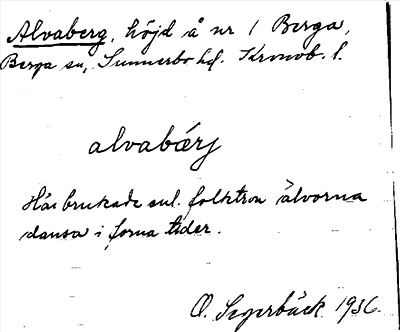 Alvaberg, höjd å nr 1 Berga,
Berga sn, Sunnerbo hd. Kronob. l.
alvabærj
Här brukade enl. folktron älvorna
dansa i forna tider.
O. Segerbäck 1936.